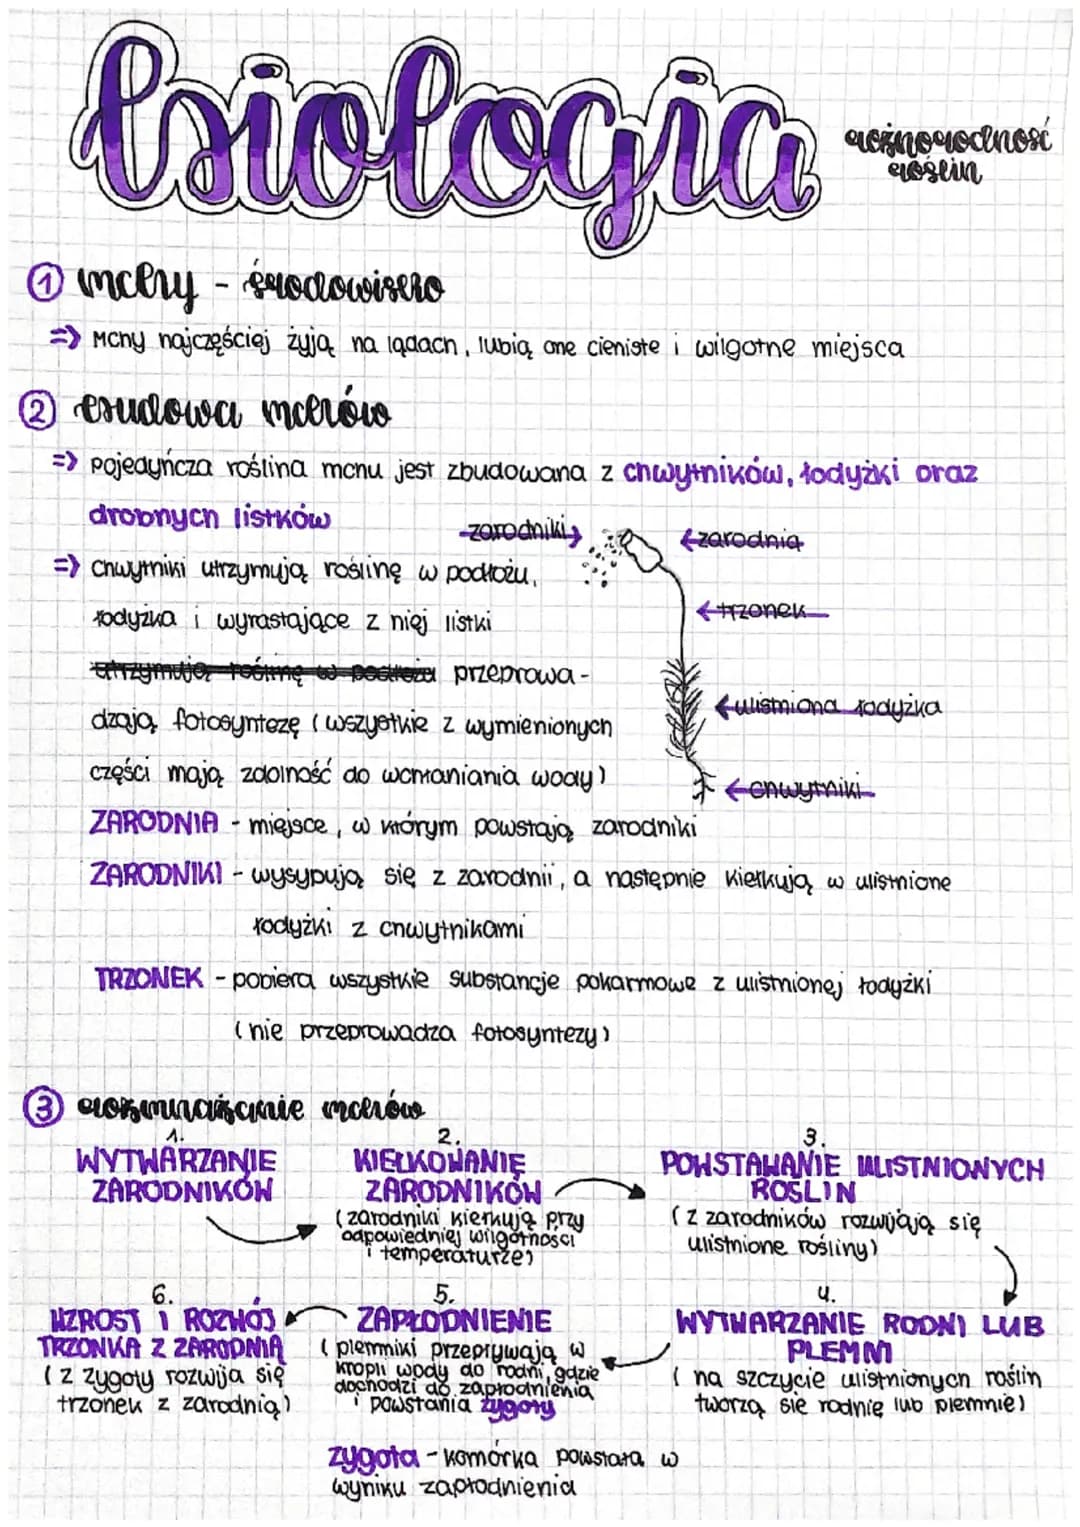 biologia
różnorodność
roślin
1 mchy - środowisko
=> Mchy najczęściej żyją na lądach, lubią one cieniste i wilgotne miejsca
2 budowa mchów
=> pojedyńcza roślina mchu jest zbudowana z chwytników, łodyżki oraz
drobnych listków
zarodniki
zarodnia
=> chwytniki utrzymują roślinę w podłożu,
trzonek
łodyżka i wyrastające z niej listki
utrzymują roślinę w podłożu przeprowa-
ulistniona łodyżka
dzają fotosyntezę (wszystkie z wymienionych
części mają zdolność do wchłaniania wody)
chwytniki
ZARODNIA - miejsce, w którym powstają zarodniki
ZARODNIKI - wysypują się z zarodnii, a następnie kiełkują w ulistnione
łodyżki z chwytnikami
TRZONEK - pobiera wszystkie substancje pokarmowe z ulistnionej łodyżki
(nie przeprowadza fotosyntezy)
3 rozmnażanie mchów
1.
WYTWARZANIE
ZARODNIKÓW
2.
KIEŁKOWANIĘ
ZARODNIKÓW
(zarodniki kiełkują przy
odpowiedniej wilgotności
i temperaturze)
3.
POWSTAWANIE ULISTNIONYCH
ROŚLIN
(z zarodników rozwijają się
ulistnione rośliny)
4.
WYTWARZANIE RODNI LUB
PLEMNI
(na szczycie ulistnionych roślin
tworzą się rodnie lub plemnie)
5.
ZAPŁODNIENIE
(plemniki przepływają w
kropli wody do rodni, gdzie
dochodzi do zapłodnienia
i powstania zygoty
6.
WZROST I ROZWÓJ
TRZONKA Z ZARODNIĄ
(z zygoty rozwija się
trzonek z zarodnią)
zygota - komórka powstała w
wyniku zapłodnienia